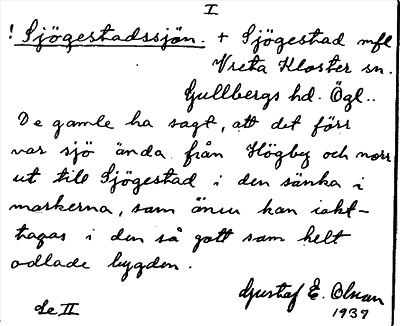 I
! Sjögestadssjön. + Sjögestad mfl
Vreta Kloster sn.
Gullbergs hd. Ögl..
De gamle ha sagt, att det förr
var sjö ända från Högby och norr
ut till Sjögestad i den sänka i
markerna, som ännu kan iakt-
tagas i den så gott som helt
odlade bygden.
Gustaf E. Olsson
Se II
1937